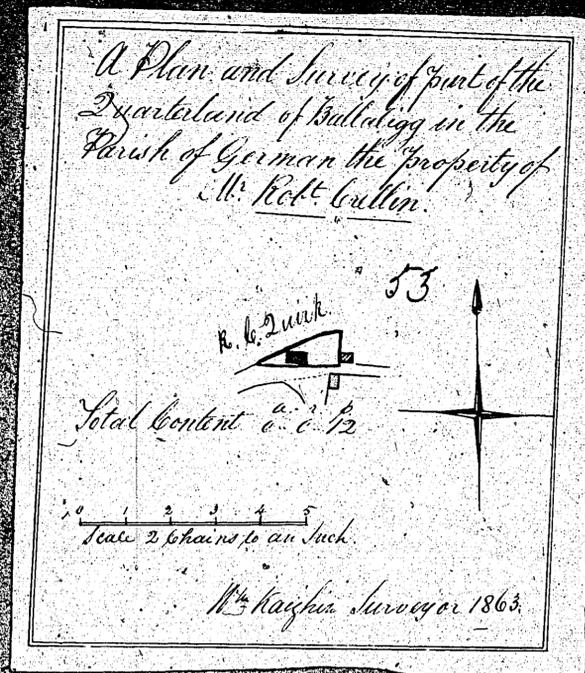 A Plan and Survey of part of the
Quarterland of Ballaligg in the
Parish of German the Property of
Mr. Robt. Crellin.
53
R. C. Quirk
a.. r.. p
Total Content 0.. 0.. 12
1 0 1 2 3 4 5
Scale 2 Chains to an Inch.
Wm Kaighin Surveyor 1863.